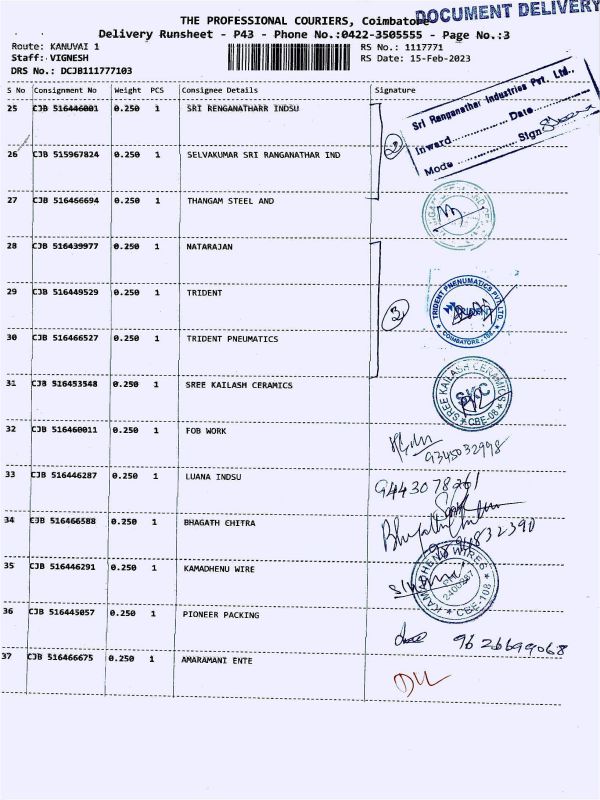 DOCUMENT DELIVERY
THE PROFESSIONAL COURIERS, Coimbatore
Delivery Runsheet - P43 - Phone No.:0422-3505555 - Page No.:3
Route: KANUVAI 1
Staff: VIGNESH
DRS No.: DCJB111777103
RS No.: 1117771
RS Date: 15-Feb-2023
S No Consignment No Weight PCS Consignee Details Signature
25 CJB 516446001 0.250 1 SRI RENGANATHARR INDSU
Sri Ranganathar Industries Pvt. Ltd.,
Inward............Date............
Mode............Sign
26 CJB 515967824 0.250 1 SELVAKUMAR SRI RANGANATHAR IND
27 CJB 516466694 0.250 1 THANGAM STEEL AND
28 CJB 516439977 0.250 1 NATARAJAN
29 CJB 516449529 0.250 1 TRIDENT
3
TRIDENT PNENUMATICS PVT LTD
TRIDENT
COIMBATORE
30 CJB 516466527 0.250 1 TRIDENT PNEUMATICS
31 CJB 516453548 0.250 1 SREE KAILASH CERAMICS
SREE KAILASH CERAMICS
SKC
CBE-08
32 CJB 516460011 0.250 1 FOB WORK
9345032998
33 CJB 516446287 0.250 1 LUANA INDSU
9443078261
34 CJB 516466588 0.250 1 BHAGATH CHITRA
35 CJB 516446291 0.250 1 KAMADHENU WIRE
KAMADHENU WIRE
CBE-108
36 CJB 516445057 0.250 1 PIONEER PACKING
9626699068
37 CJB 516466675 0.250 1 AMARAMANI ENTE
DL